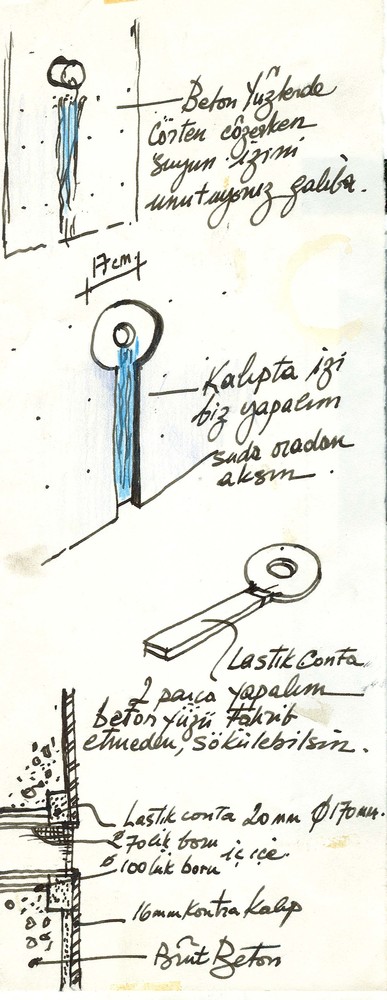 Beton Yüzlerde
Çörten çözerken
Suyun izini
unutuyoruz galiba.
17cm
Kalıpta izi
biz yapalım
suda oradan
aksın.
Lastik Conta
2 parça yapalım
beton yüzü tahrib
etmeden, sökülebilsin.
Lastik conta 20mm Ø170mm.
70lik boru
100lük boru iç içe.
16mm Kontra Kalıp
Brüt Beton